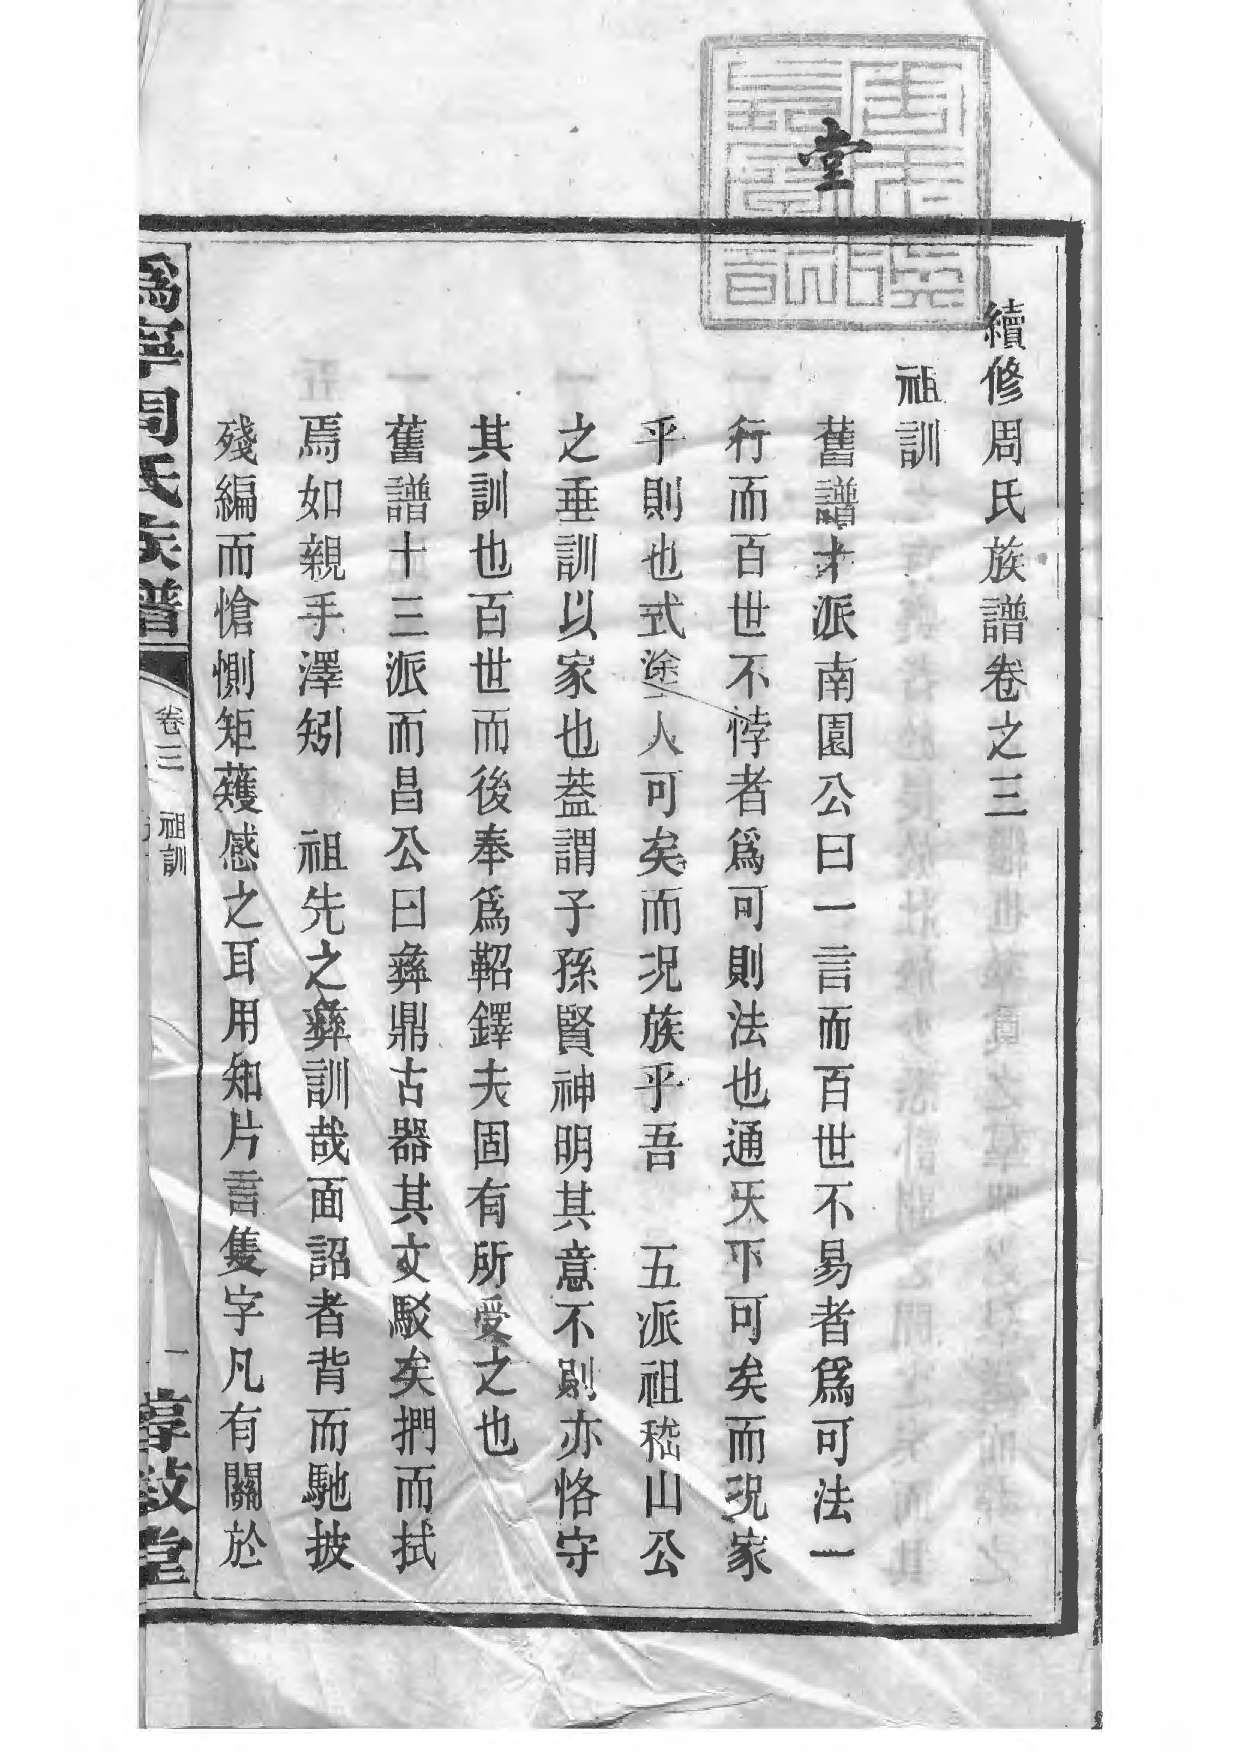 堂
續修周氏族譜卷之三
祖訓
舊譜才派南園公曰一言而百世不易者爲可法一
行而百世不悖者爲可則法也通天下可矣而況家
乎則也式塗人可矣而況族乎吾 五派祖嵇山公
之垂訓以家也蓋謂子孫賢神明其意不則亦恪守
其訓也百世而後奉爲鞀鐸夫固有所受之也
舊譜十三派而昌公曰彝鼎古器其文駁矣捫而拭
焉如親手澤矧 祖先之彝訓哉面詔者背而馳披
殘編而愴惻矩蒦感之耳用知片言隻字凡有關於
爲寧周氏族譜
卷三 祖訓
一
享敘堂